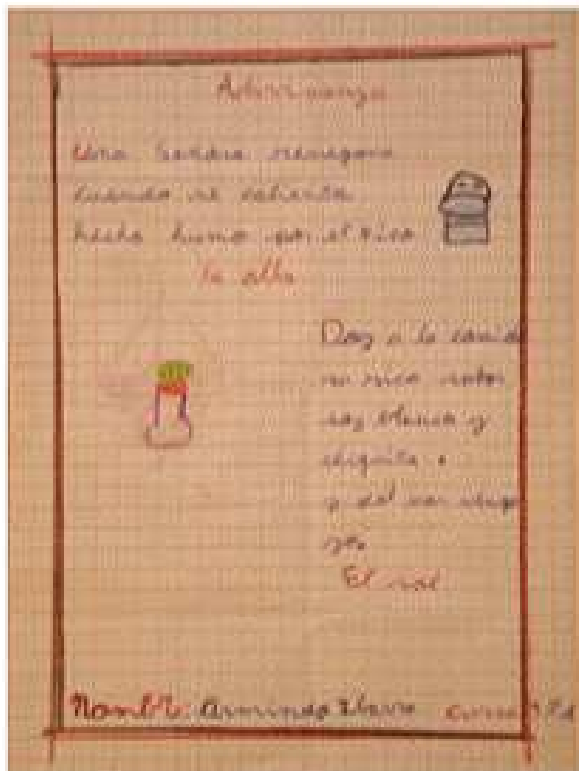 Adivinanza
Una señora
cuando se calienta
hecha humo por el pico
la olla
Doy a la comida
mi rico sabor
soy blanca y
chiquita
y del mar vengo
yo.
El sal
Nombr: Armindo curso